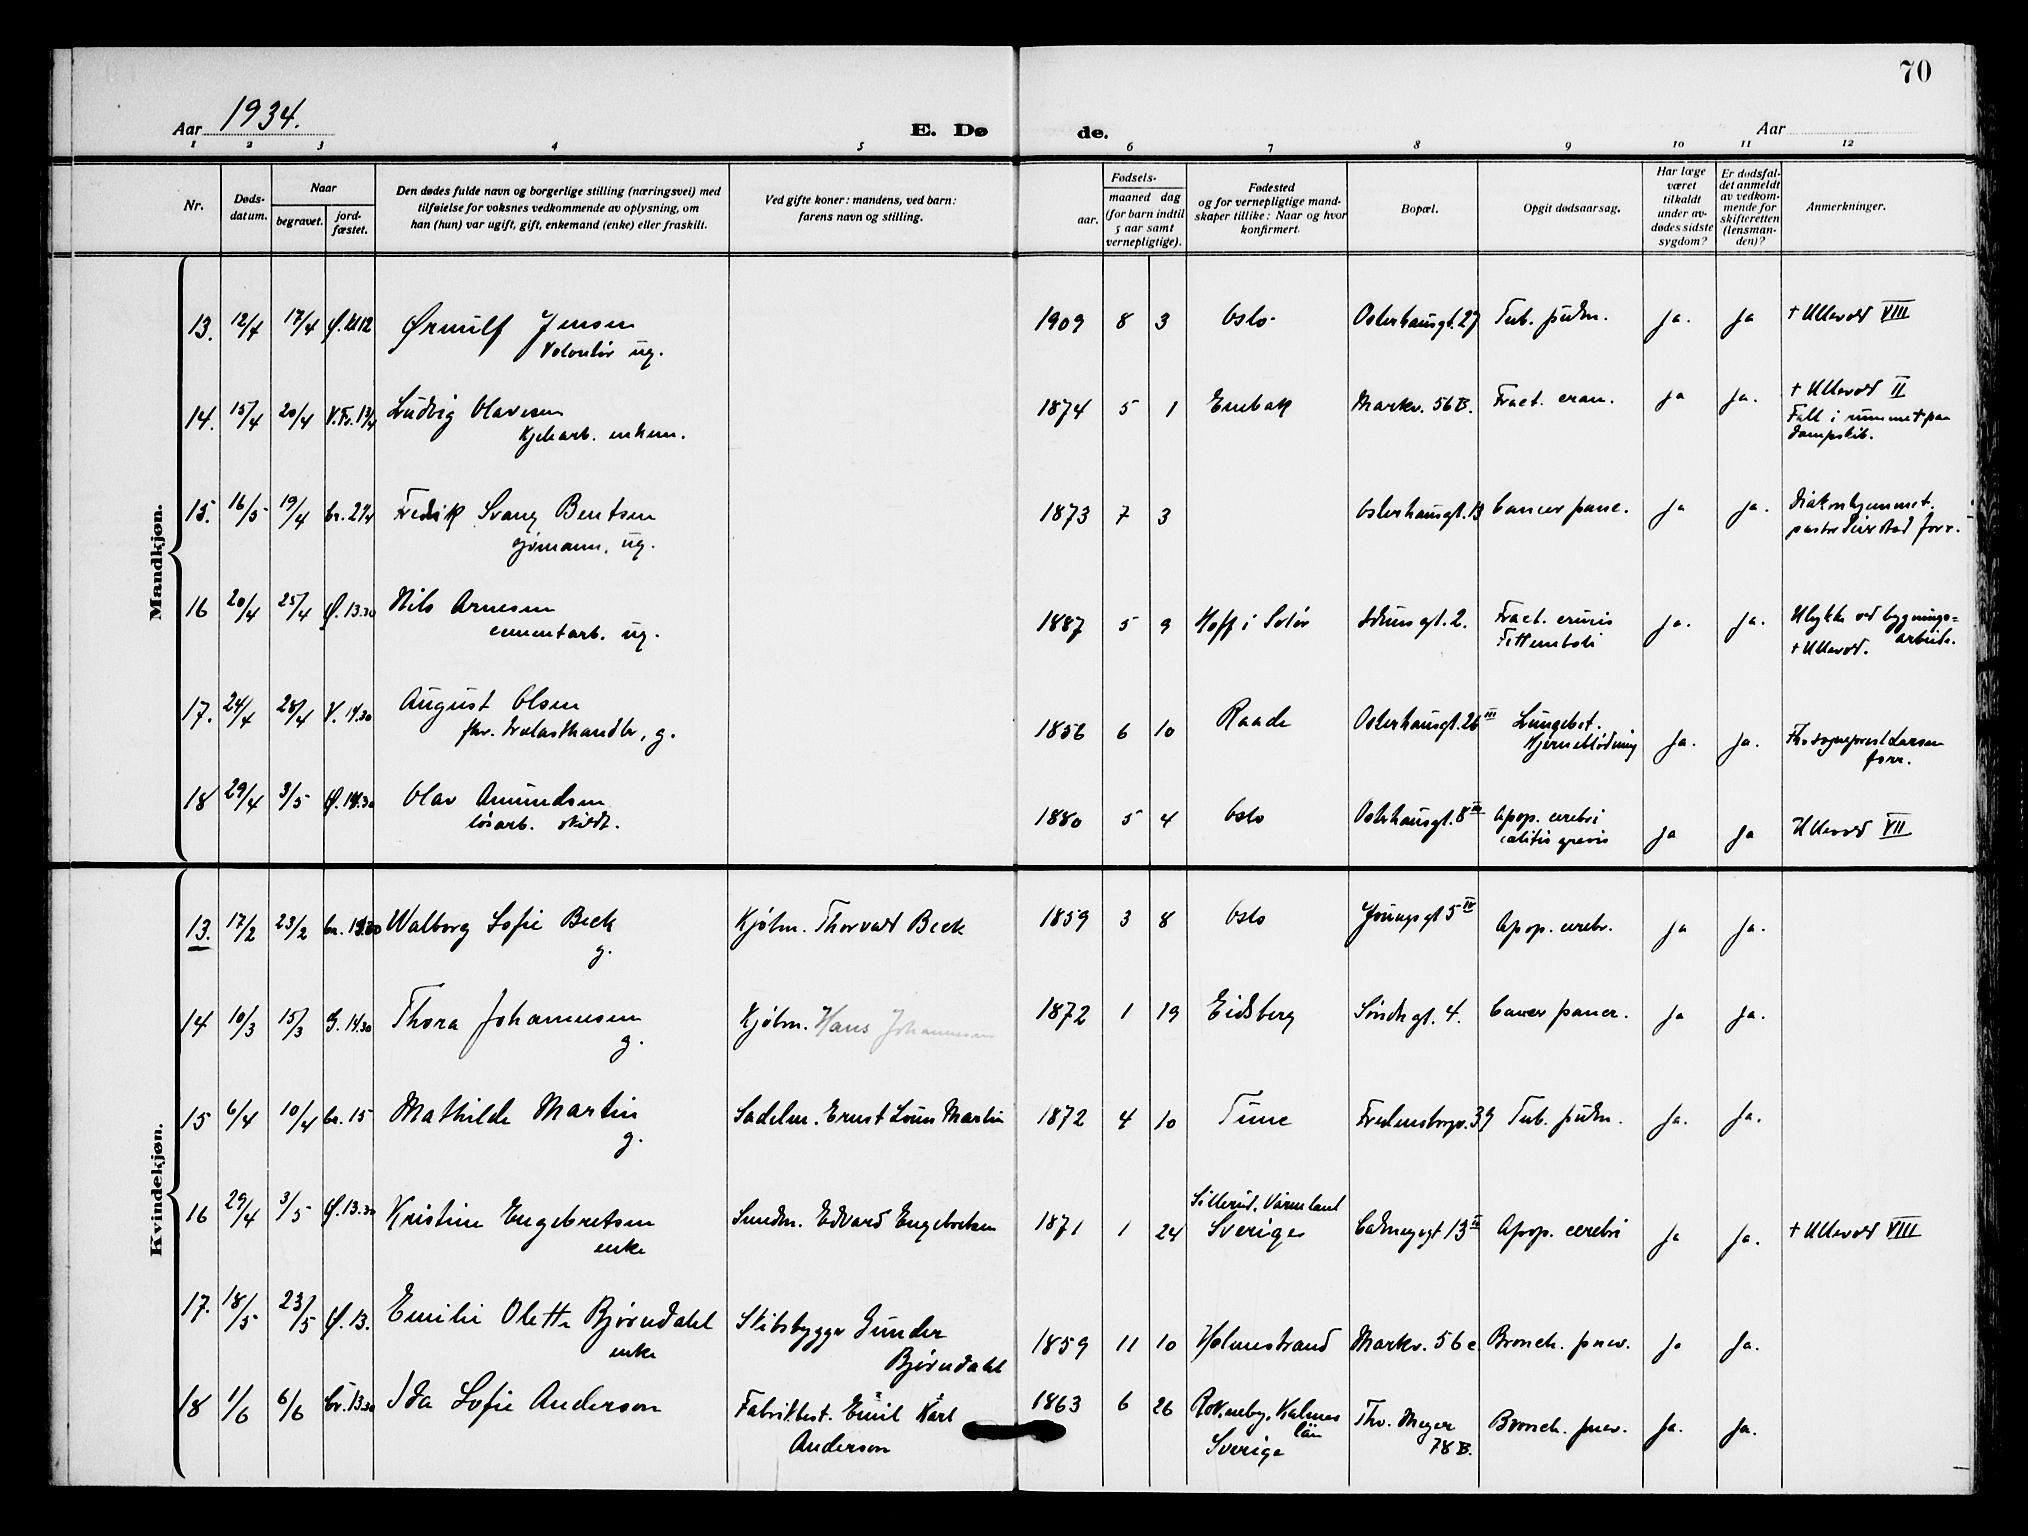 70
Aar 1934.
E. Dø
de.
Aar
1 2 3 4 5 6 7 8 9 10 11 12
Nr.
Døds-
datum.
Naar
begravet.
jord-
fæstet.
Den dødes fulde navn og borgerlige stilling (næringsvei) med
tilføielse for voksnes vedkommende av oplysning, om
han (hun) var ugift, gift, enkemand (enke) eller fraskilt.
Ved gifte koner: mandens, ved barn:
farens navn og stilling.
Fødsels-
aar.
maaned dag
(for barn indtil
5 aar samt
vernepligtige).
Fødested
og for vernepligtige mand-
skaper tillike: Naar og hvor
konfirmert.
Bopæl.
Opgit dødsaarsag.
Har læge
været
tilkaldt
under av-
dødes sidste
sygdom?
Er dødsfal-
det anmeldt
av vedkom-
mende for
skifteretten
(lensman-
den)?
Anmerkninger.
Mandkjøn.
13. 12/4 17/4 Ø. Ørnulf Jensen 1909 8 3 Oslo Osterhausgt. 27 Tub. pulm. ja. ja + Ullevål VIII
Volontør ug.
14. 15/4 20/4 Ludvig Olavesen 1874 5 1 Enebak Markv. 56 B. Fract. cran. ja ja. + Ullevål II
enkem. Fall i rummet paa
dampskib.
15. 16/5 19/4 Fredrik Svang Bentsen 1873 7 3 Osterhausgt. 13 Cancer panc. ja ja. Diakonhjemmet.
ug. pastor forr.
16 20/4 25/4 Ø. 13.30 Nils Arnesen 1887 5 9 Hoff i Solør Idunsgt. 2. Fract. cruris ja. ja. Ulykke ved bygnings=
cementarb. ug. Fettemboli + Ullevål. arbeide.
17. 24/4 28/4 V. 14.30 August Olsen 1856 6 10 Raade Osterhausgt. 26 III Lungebet. ja. ja. sogneprest Larsen
fhv. trelasthandler, g. Hjerneblødning forr.
18 29/4 3/5 Ø. 14.30 Olav Amundsen 1880 5 4 Oslo Osterhausgt. 8 III Apop. cerebri ja ja Ullevål VII
løsarb. skildt.
Kvindekjøn.
13. 17/2 23/2 Walborg Sofie Beck Kjøbm. Thorvald Beck 1859 3 8 Oslo Youngsgt 5 IV Apop. cerebr. ja ja.
g.
14 10/3 15/3 G. 14.30 Thora Johannesen Kjøbm. Hans Johannesen 1872 1 19 Eidsberg Søndregt. 4. Cancer pancr. ja ja.
g.
15 6/4 10/4 cr. 15 Mathilde Martin Sadelm. Ernst Louis Martin 1872 4 10 Tune Fredensborgv. 39 Tub. pulm. ja. ja.
g.
16 29/4 3/5 Ø. 13.30 Kristine Engebretsen Edvard Engebretsen 1871 1 24 Sillerud, Värmland Calmeyergt 13 Apop. cerebri ja ja. + Ullevål VIII
enke Sverige
17. 18/5 23/5 Ø. 13. Emilie Olette Bjørndahl Skibsbygger Gunder 1859 11 10 Holmestrand Markv. 56 c. Bronch. pnev. ja ja.
enke Bjørndahl
18 1/6 6/6 cr. 13.30 Ida Sofie Anderson Fabrikbest. Emil Karl 1863 6 26 Kalmar Thv. Meyer Bronch. pnev. ja. ja.
Anderson län 78 B.
Sverige